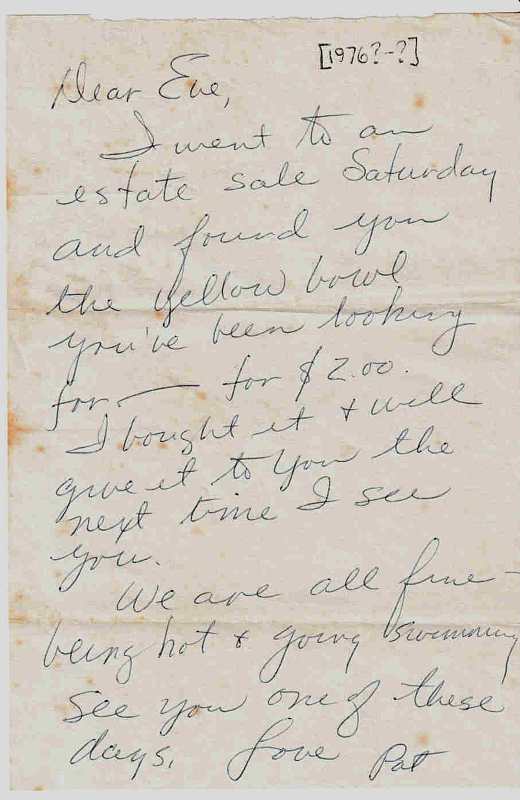 [1976?-?]
Dear Eve,
I went to an
estate sale Saturday
and found you
the yellow bowl
you've been looking
for — for $2.00.
I bought it & will
give it to you the
next time I see
you.
We are all fine -
being hot & going swimming
see you one of these
days. Love Pat